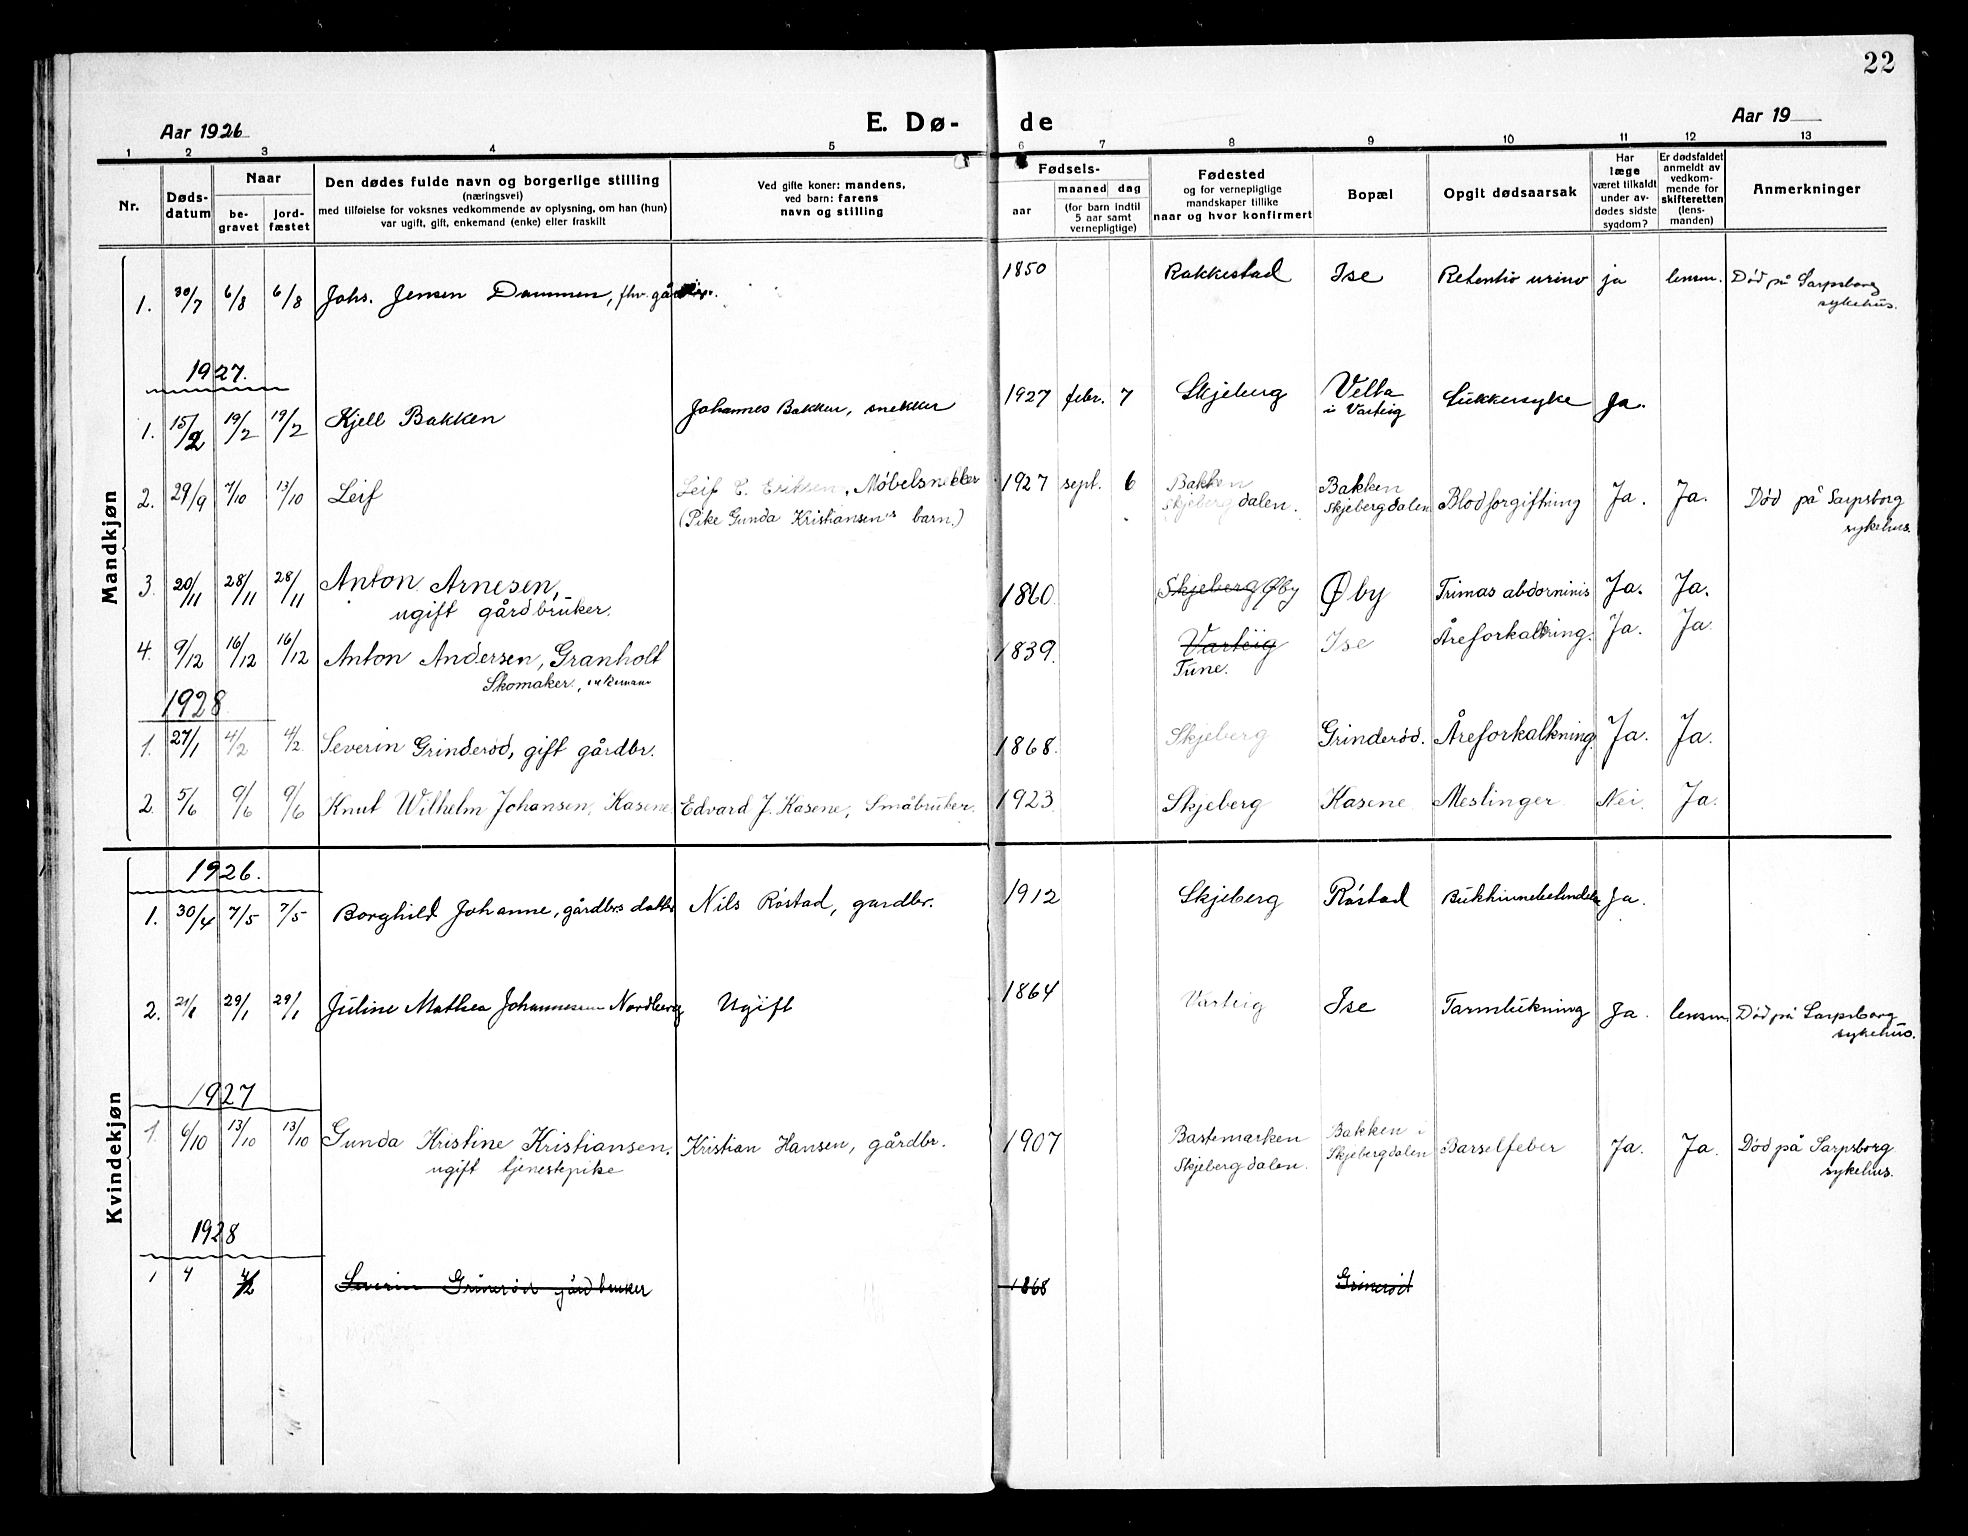 22
Aar 1926
E. Dø- de
Aar 19
1 2 3 4 5 6 7 8 9 10 11 12 13
Nr.
Døds-
datum
Naar
be-
gravet
jord-
fæstet
Den dødes fulde navn og borgerlige stilling
(næringsvei)
med tilføielse for voksnes vedkommende av oplysning, om han (hun)
var ugift, gift, enkemand (enke) eller fraskilt
Ved gifte koner: mandens,
ved barn: farens
navn og stilling
Fødsels-
aar
maaned dag
(for barn indtil
5 aar samt
vernepligtige)
Fødested
og for vernepligtige
mandskaper tillike
naar og hvor konfirmert
Bopæl
Opgit dødsaarsak
Har
læge
været tilkaldt
under av-
dødes sidste
sygdom?
Er dødsfaldet
anmeldt av
vedkom-
mende for
skifteretten
(lens-
manden)
Anmerkninger
Mandkjøn
1. 30/7 6/8 6/8 Johs. Jensen Dammen, fhv. 1850 Rakkestad Ise Retentio urino ja lensm. Død på Sarpsborg
sykehus.
1927.
1. 15/2 19/2 19/2 Kjell Bakken Johannes Bakken, snekker 1927 febr. 7 Skjeberg Velta Sukkersyke Ja.
i Varteig
2. 29/9 7/10 13/10 Leif Leif E. Eriksen, Møbelsnekker 1927 sept. 6 Bakken Bakken Blodforgiftning Ja. Ja. Død på Sarpsborg
(Pike Gunda Kristiansen's barn.) Skjebergdalen. Skjebergdalen. sykehus.
3. 20/11 28/11 28/11 Anton Arnesen, 1860. Skjeberg Øby Øby abdominis Ja. Ja.
ugift gårdbruker.
4. 9/12 16/12 16/12 Anton Andersen, Granholt 1839. Varteig Ise Åreforkalkning. Ja. Ja.
Skomaker, enkemann Tune.
1928
1. 27/1 4/2 4/2 Severin Grinderød, gift gårdbr. 1868. Skjeberg Grinderød. Åreforkalkning. Ja. Ja.
2. 5/6 9/6 9/6 Knut Wilhelm Johansen, Kasene Edvard J. Kasene, Småbruker. 1923. Skjeberg Kasene Meslinger Nei. Ja.
Kvindekjøn
1926.
1. 30/4 7/5 7/5 Borghild Johanne, gårdbrs datter Nils Röstad, gardbr. 1912 Skjeberg Röstad Bukhinnebetendelse Ja.
2. 29/1 29/1 Juline Mathea Johannesen Nordberg Ugift 1864 Varteig Ise Tarmlukning Ja. lensm. Død på Sarpsborg
sykehus.
1927
1. 6/10 13/10 13/10 Gunda Kristine Kristiansen. Kristian Hansen, gårdbr. 1907 Bastemarken Bakken i Barselfeber Ja. Ja. Død på Sarpsborg
ugift tjenestepike Skjebergdalen. Skjebergdalen sykehus.
1928
1 4 4/2 Severin Grinerød gårdbruker 1868 Grinerød